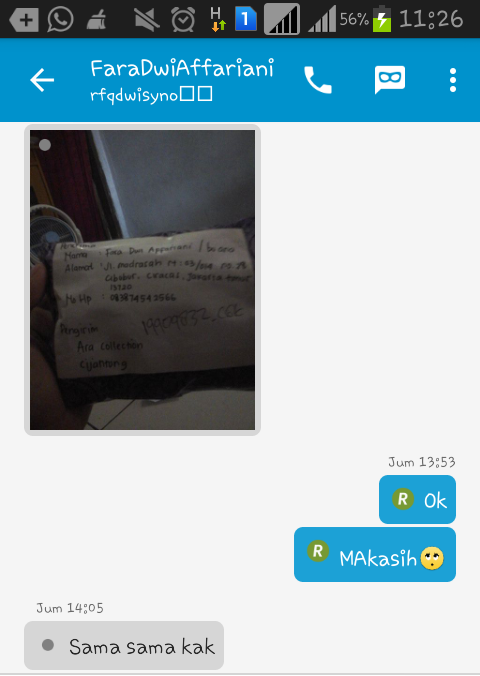 H 1 56% 11:26
FaraDwiAffariani
rfqdwisyno
Nama : Fara Dwi Apfariani / bu
Alamat : Jl. madrasah rt : 03/
Cibubur, Ciracas, Jakarta timur
13720
No Hp :
Pengirim
Ara collection
Cijantung
Jum 13:53
R Ok
R MAkasih
Jum 14:05
Sama sama kak